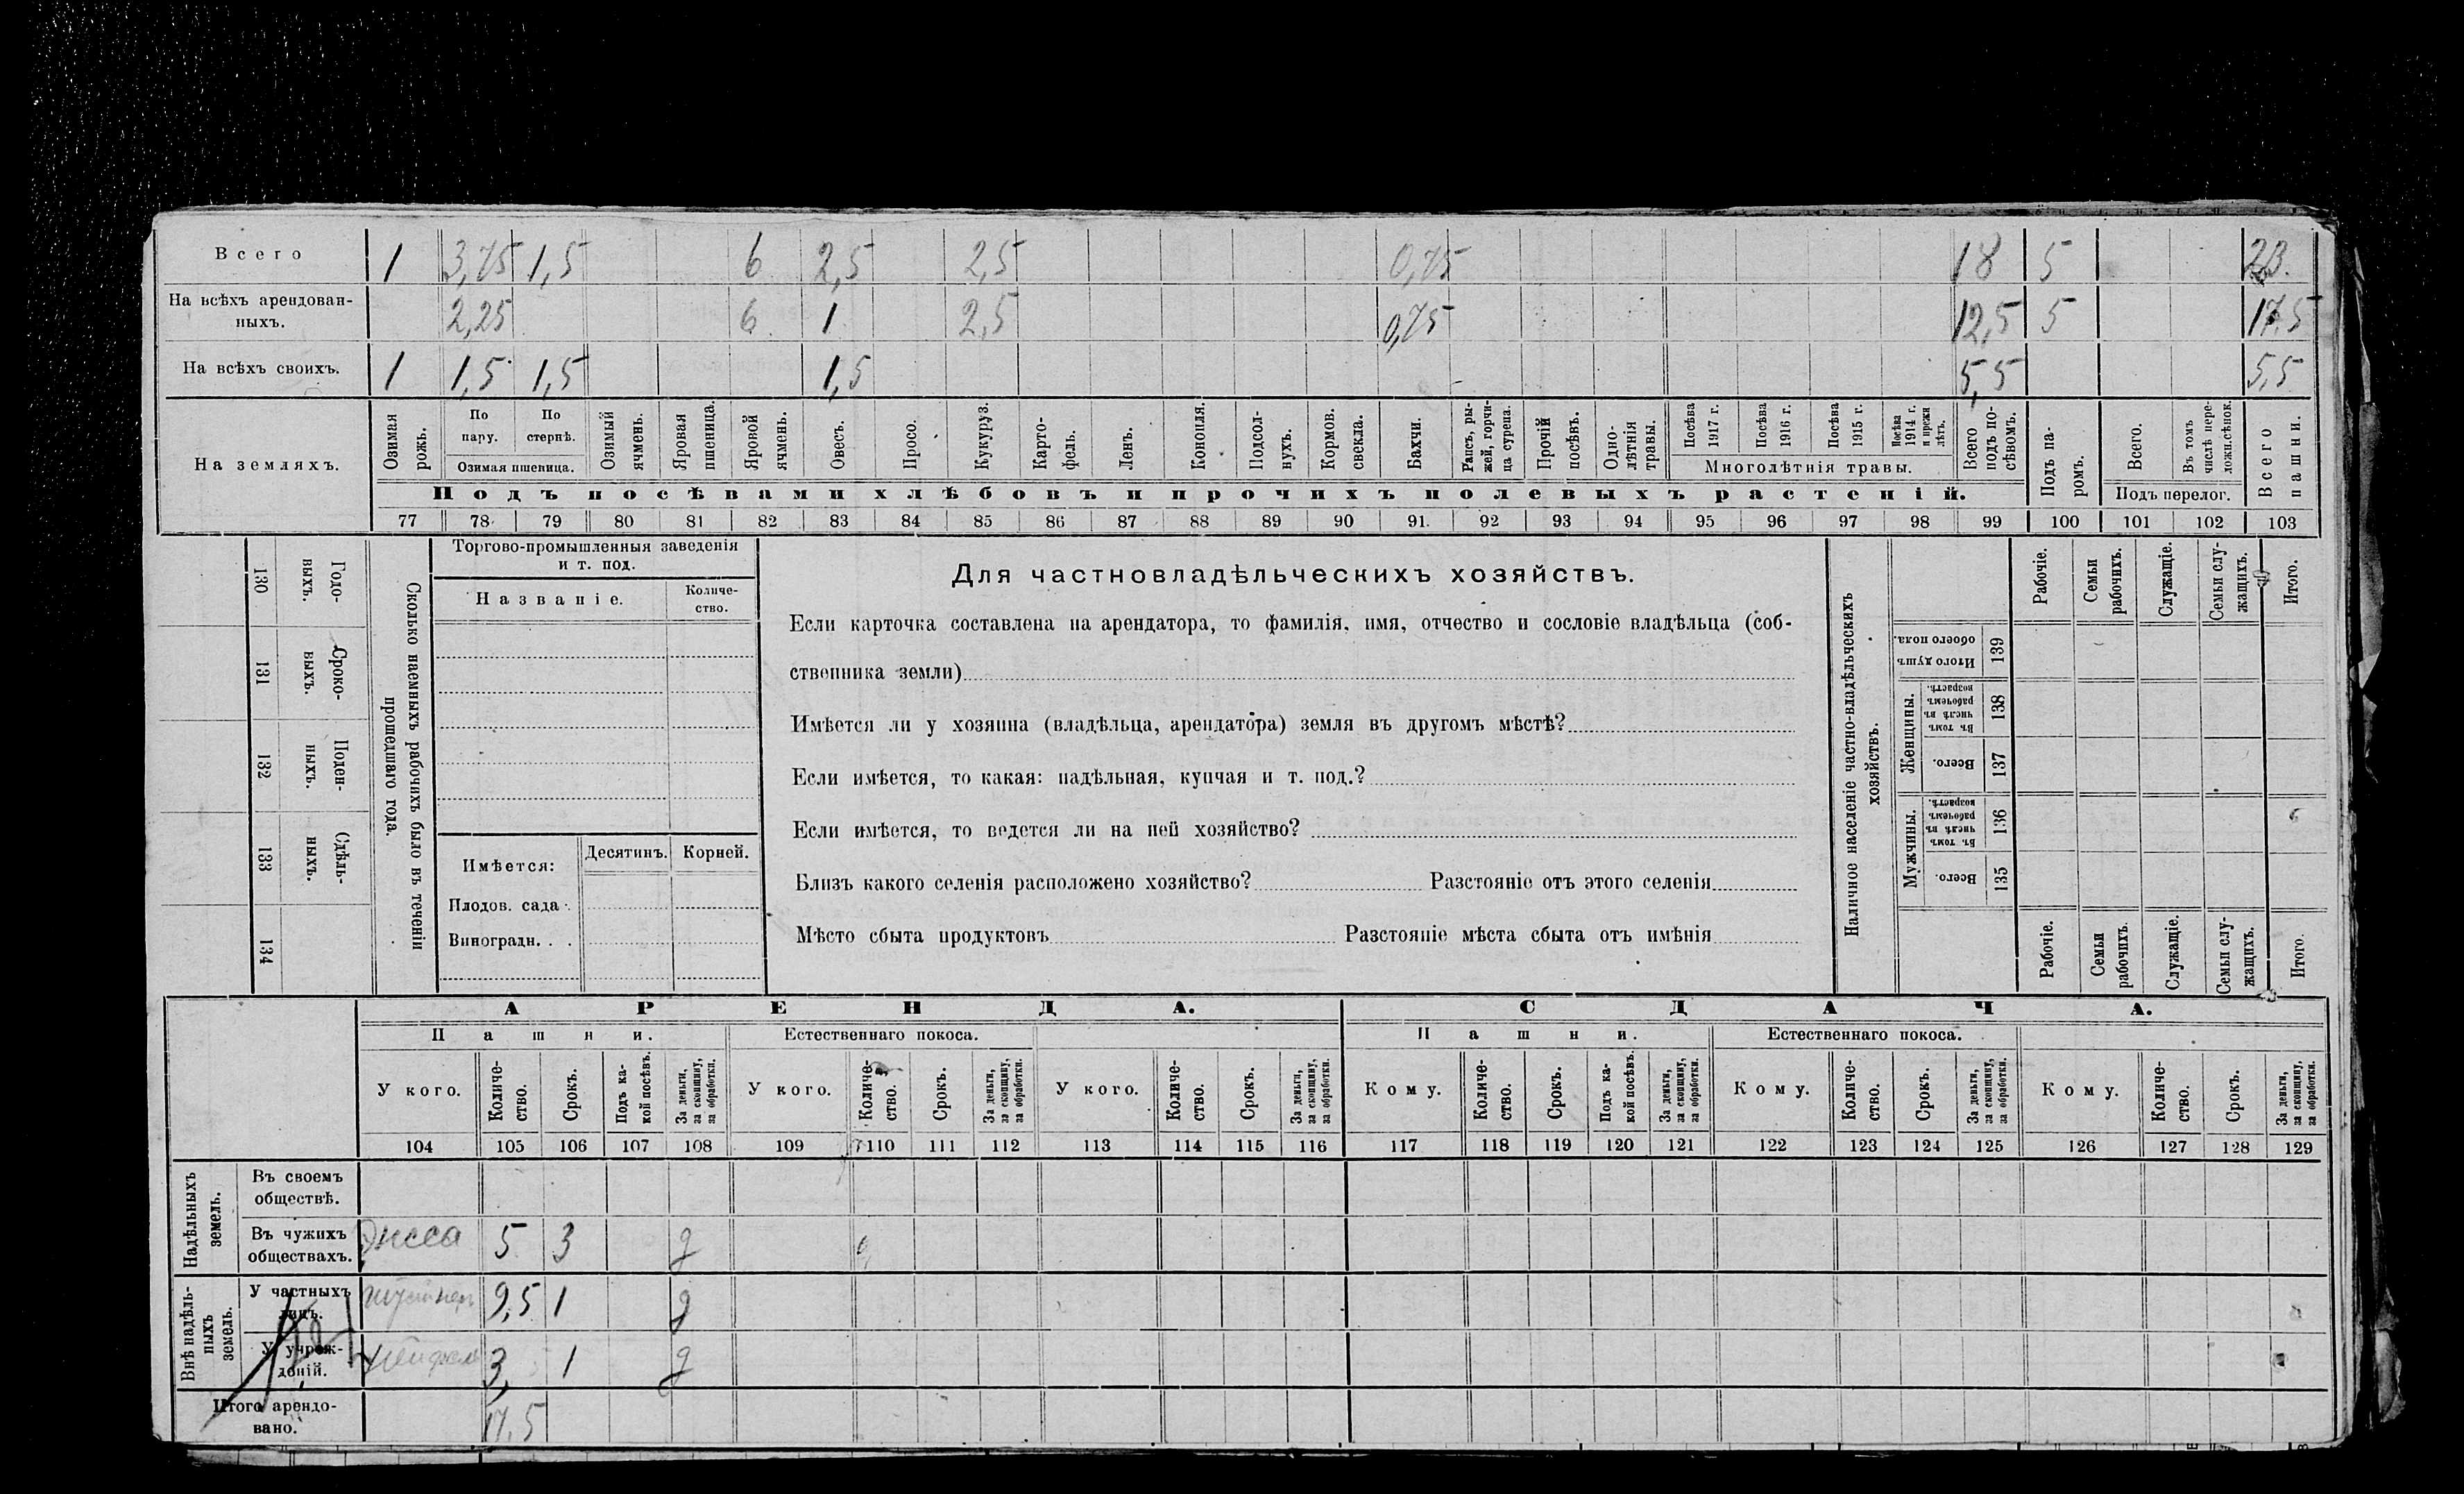 Всего 1 3,75 1,5 6 2,5 2,5 0,75 18 5 23.
На всѣхъ арендован-
ныхъ. 2,25 6 1 2,5 0,75 12,5 5 17,5
На всѣхъ своихъ. 1 1,5 1,5 1,5 5,5 5,5
На земляхъ.
Озимая рожь.
По пару.
По стернѣ.
Озимая пшеница.
Озимый ячмень.
Яровая пшеница.
Яровой ячмень.
Овесъ.
Просо.
Кукуруз.
Карто-
фель.
Ленъ.
Конопля.
Подсол-
нухъ.
Кормов. свекла.
Бахчи.
Рапсъ, ры-
жей, горчи-
ца сурепа.
Прочій посѣвъ.
Одно-
лѣтнія
травы.
Посѣва 1917 г.
Посѣва 1916 г.
Посѣва 1915 г.
Посѣва 1914 г. и прежн лѣтъ.
Многолѣтнія травы.
Всего подъ по-
сѣвомъ.
Подъ па-
ромъ.
Всего.
Въ томъ числѣ пере-
ложн.сѣнок.
Подъ перелог.
Всего пашни.
Подъ посѣвами хлѣбовъ и прочихъ полевыхъ растеній.
77 78 79 80 81 82 83 84 85 86 87 88 89 90 91. 92 93 94 95 96 97 98 99 100 101 102 103
130 Годо-
выхъ.
131 Сроко-
выхъ.
132 Поден-
ныхъ.
133 Сдѣль-
ныхъ.
134
Сколько наемныхъ рабочихъ было въ теченіи
прошедшаго года.
Торгово-промышленныя заведенія
и т. под.
Названіе.
Количе-
ство.
Имѣется: Десятинъ. Корней.
Плодов. сада.
Виноградн. . .
Для частновладѣльческихъ хозяйствъ.
Если карточка составлена на арендатора, то фамилія, имя, отчество и сословіе владѣльца (соб-
ственника земли)
Имѣется ли у хозяина (владѣльца, арендатора) земля въ другомъ мѣстѣ?
Если имѣется, то какая: надѣльная, купчая и т. под.?
Если имѣется, то ведется ли на ней хозяйство?
Близъ какого селенія расположено хозяйство? Разстояніе отъ этого селенія
Мѣсто сбыта продуктовъ Разстояніе мѣста сбыта отъ имѣнія
Наличное населеніе частно-владѣльческихъ
хозяйствъ.
Рабочіе.
Семьи рабочихъ.
Служащіе.
Семьи слу-
жащихъ.
Итого.
Итого душъ обоего пола. 139
Женщины.
Въ томъ числѣ въ рабочемъ возрастѣ. 138
Всего. 137
Мужчины.
Въ томъ числѣ въ рабочемъ возрастѣ. 136
Всего. 135
Рабочіе.
Семьи рабочихъ.
Служащіе.
Семьи слу-
жащихъ.
Итого.
АРЕНДА. СДАЧА.
Пашни. Естественнаго покоса. Пашни. Естественнаго покоса.
У кого.
Количе-
ство.
Срокъ.
Подъ ка-
кой посѣвъ.
За деньги,
за скопщину,
за обработки.
У кого.
Количе-
ство.
Срокъ.
За деньги,
за скопщину,
за обработки.
У кого.
Количе-
ство.
Срокъ.
За деньги,
за скопщину,
за обработки.
Кому.
Количе-
ство.
Срокъ.
Подъ ка-
кой посѣвъ.
За деньги,
за скопщину,
за обработки.
Кому.
Количе-
ство.
Срокъ.
За деньги,
за скопщину,
за обработки.
Кому.
Количе-
ство.
Срокъ.
За деньги,
за скопщину,
за обработки.
104 105 106 107 108 109 110 111 112 113 114 115 116 117 118 119 120 121 122 123 124 125 126 127 128 129
Надѣльныхъ
земель.
Въ своемъ
обществѣ.
Въ чужихъ
обществахъ. 5 3 д
Внѣ надѣль-
ныхъ
земель.
У частныхъ
лицъ. 9,5 1 д
У учреж-
деній. 3, 1 д
Итого арендо-
вано. 17,5